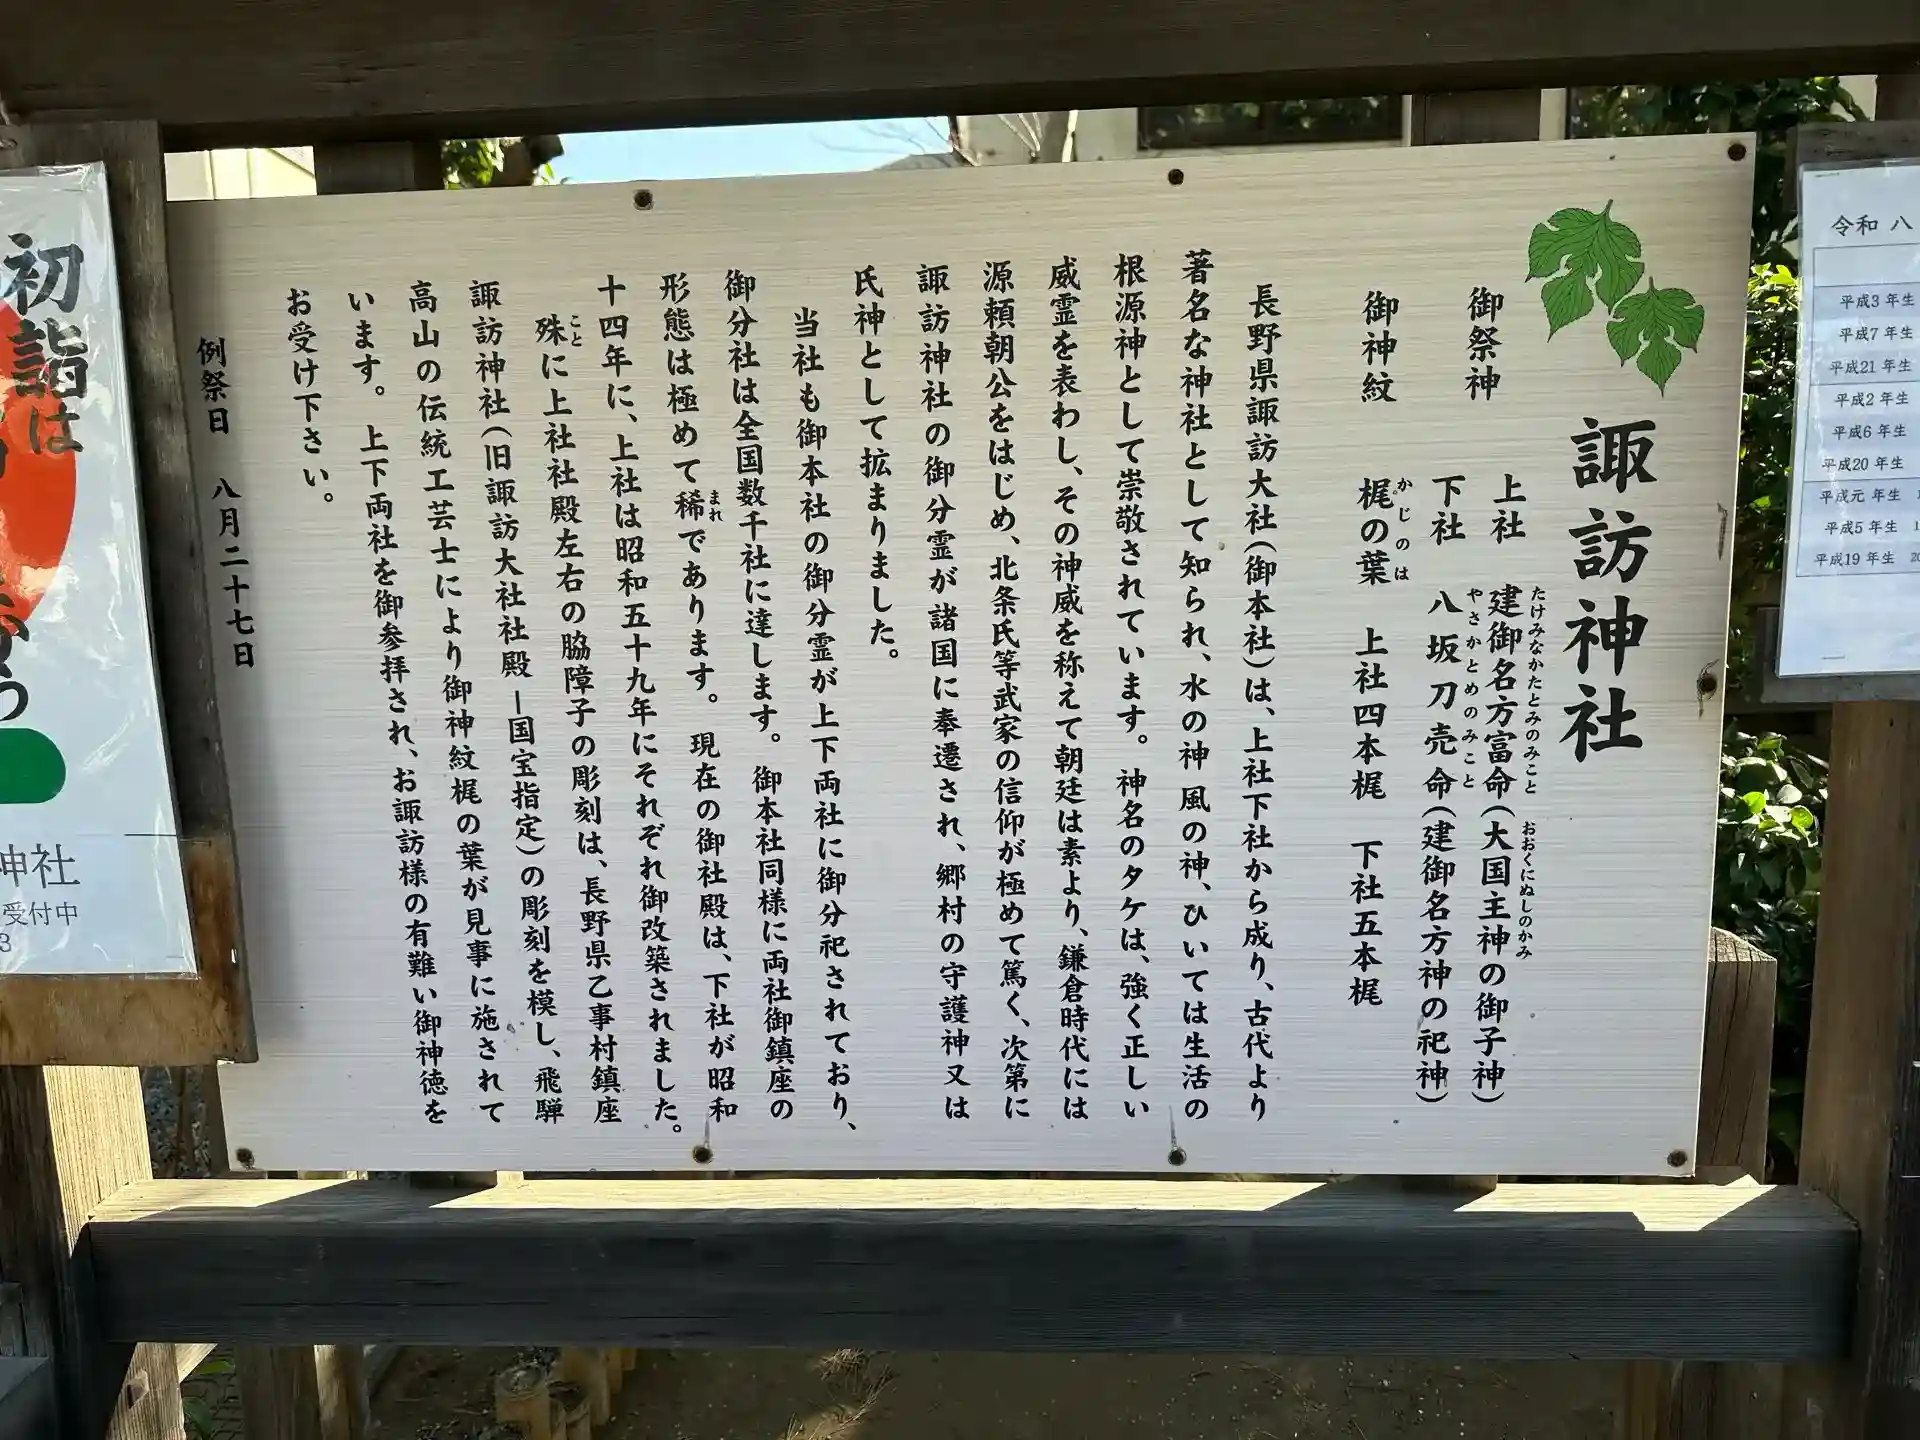 諏訪神社
御祭神 上社 建御名方富命(大国主神の御子神)
たけみなかたとみのみこと おおくにぬしのかみ
下社 八坂刀売命(建御名方神の祀神)
やさかとめのみこと
御神紋 梶の葉 上社四本梶 下社五本梶
かじのは
長野県諏訪大社(御本社)は、上社下社から成り、古代より
著名な神社として知られ、水の神風の神、ひいては生活の
根源神として崇敬されています。神名のタケは、強く正しい
威霊を表わし、その神威を称えて朝廷は素より、鎌倉時代には
源頼朝公をはじめ、北条氏等武家の信仰が極めて篤く、次第に
諏訪神社の御分霊が諸国に奉遷され、郷村の守護神又は
氏神として拡まりました。
当社も御本社の御分霊が上下両社に御分祀されており、
御分社は全国数千社に達します。御本社同様に両社御鎮座の
形態は極めて稀であります。現在の御社殿は、下社が昭和
まれ
十四年に、上社は昭和五十九年にそれぞれ御改築されました。
殊に上社社殿左右の脇障子の彫刻は、長野県乙事村鎮座
こと
諏訪神社(旧諏訪大社社殿―国宝指定)の彫刻を模し、飛騨
高山の伝統工芸士により御神紋梶の葉が見事に施されて
います。上下両社を御参拝され、お諏訪様の有難い御神徳を
お受け下さい。
例祭日 八月二十七日
初詣は
神社
受付中
3
令和 八
平成3年生
平成7年生
平成21年生
平成2年生
平成6年生
平成20年生
平成元年生
平成5年生
平成19年生